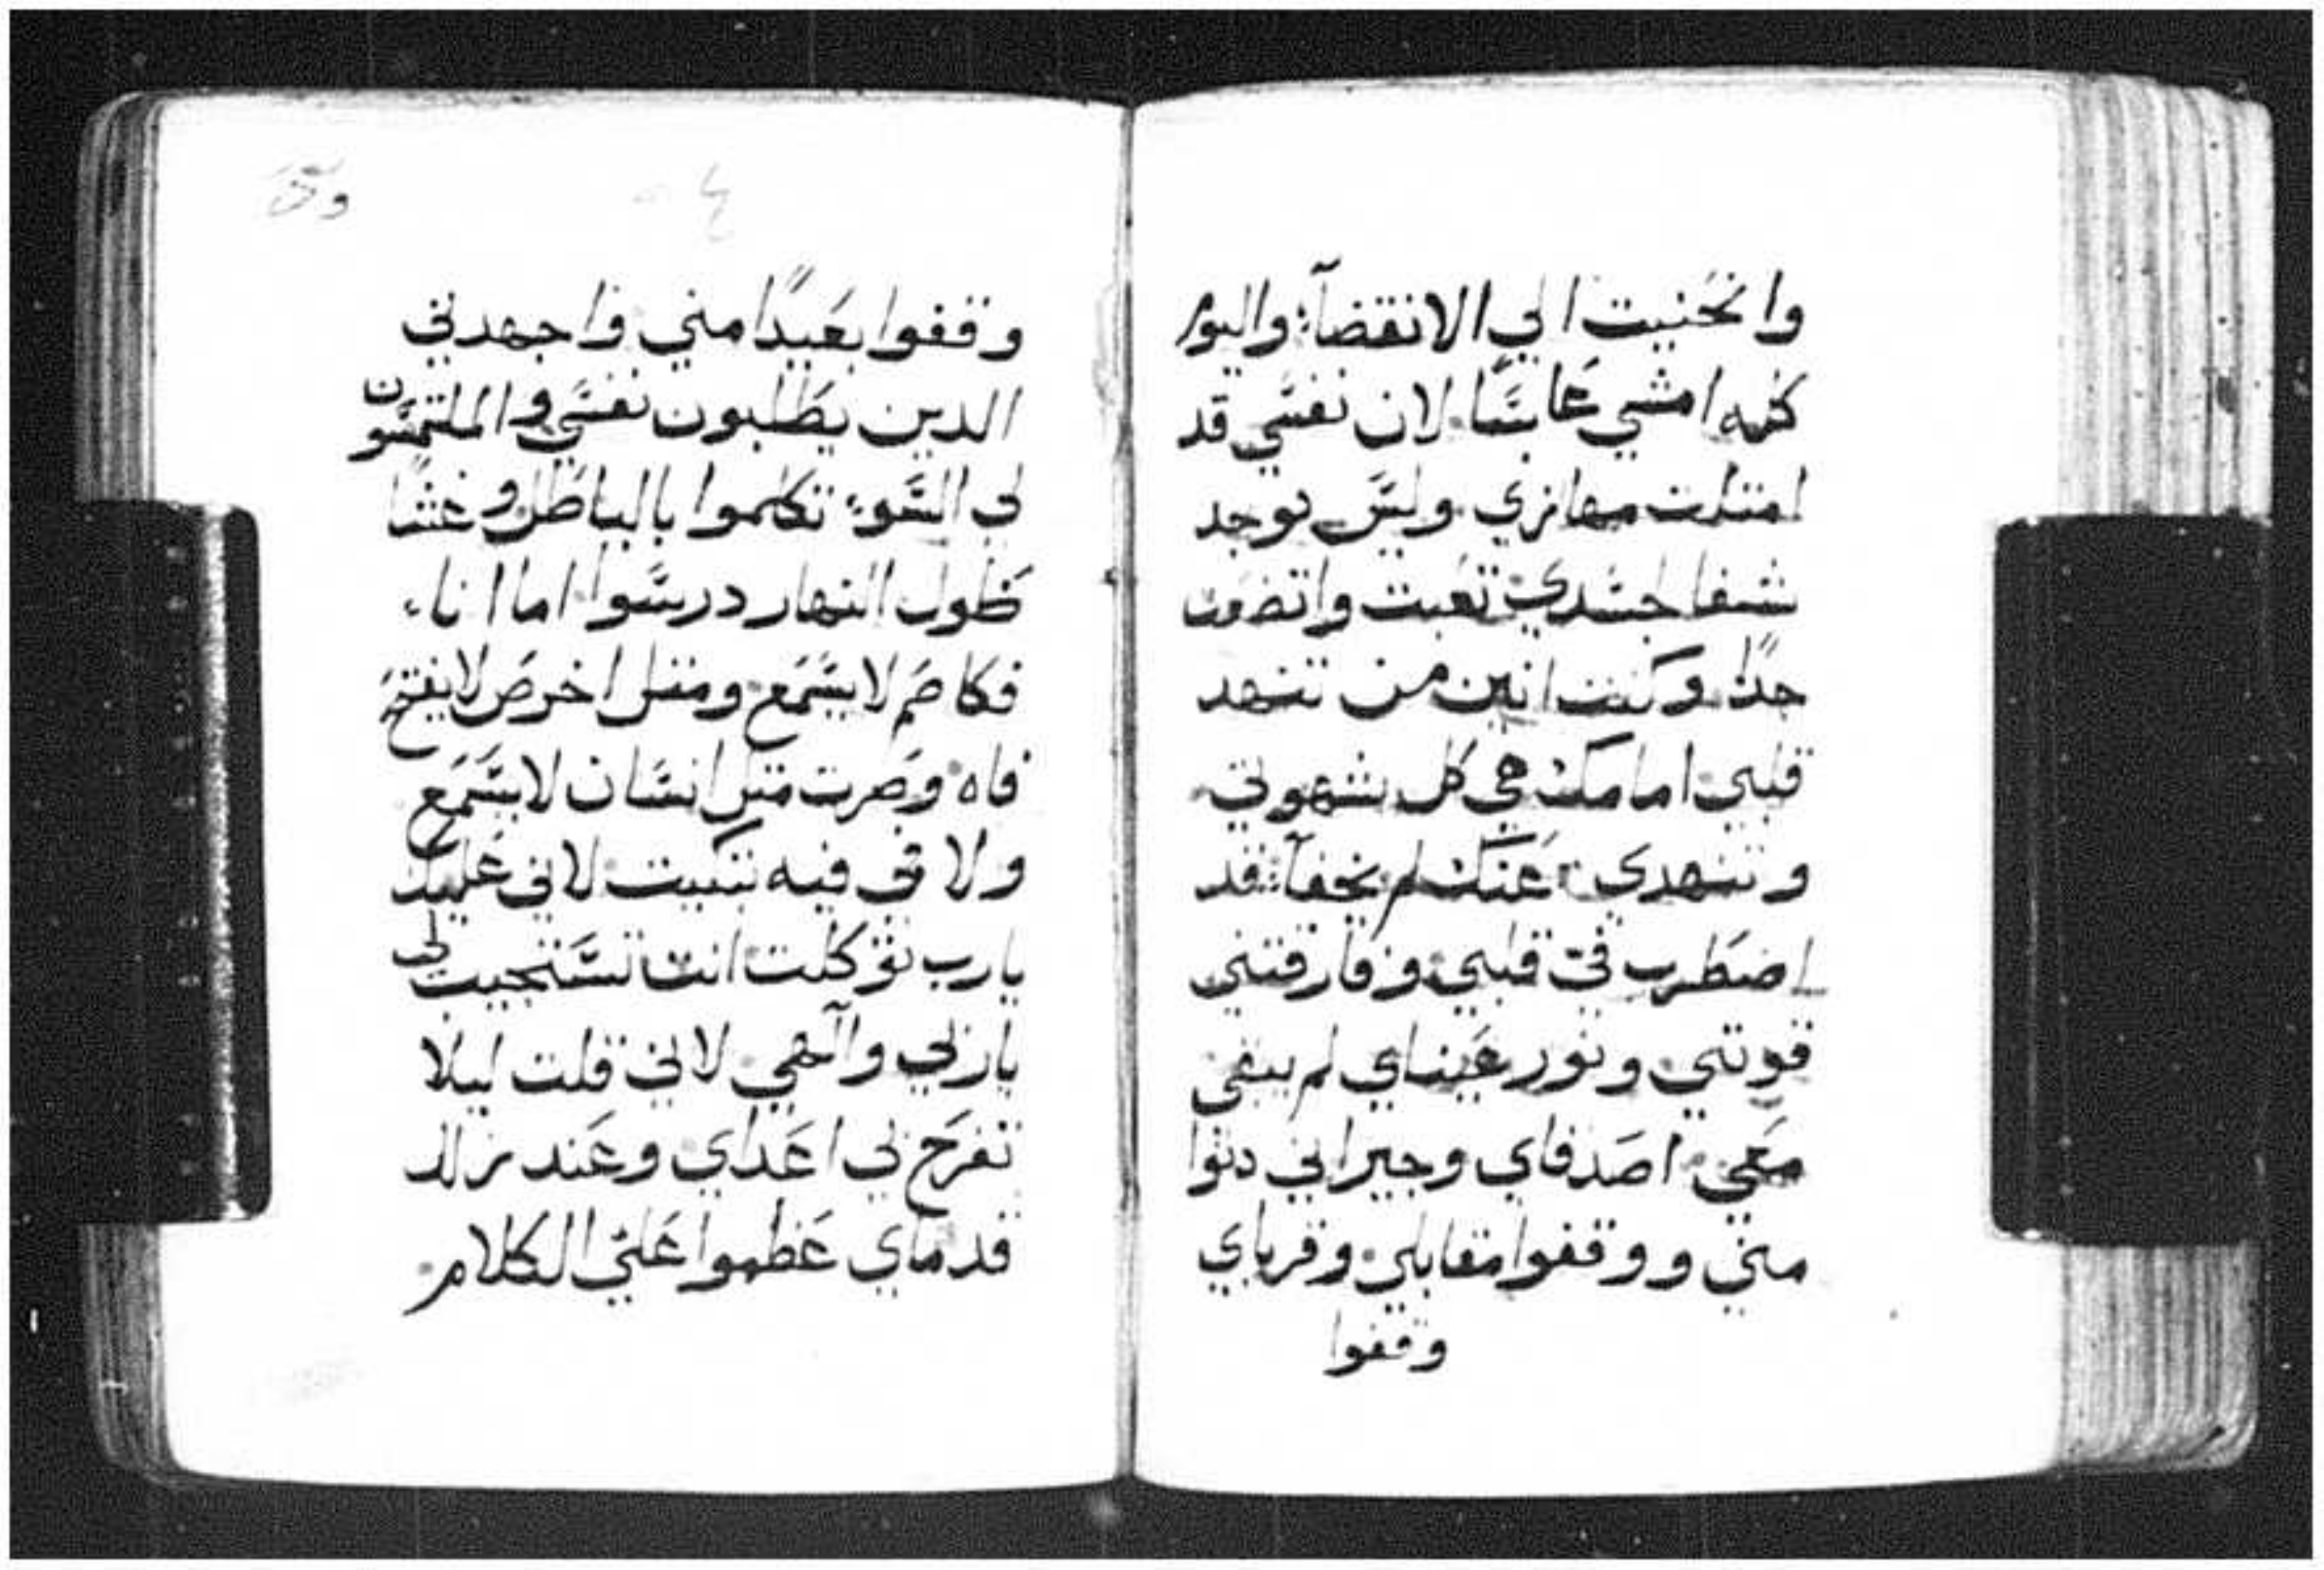 وانحنيت الي الانقضآء واليوم
كله امشي عابسًا لان نفسي قد
امتلات مهازي وليس يوجد
شفا جسدي تعبت واتضعت
جدًا وكنت انين من تنهد
قلبي امامك هي كل شهوتي
وتنهدي عنك لم يخفآ قد
اضطرب فيّ قلبي وفارقتني
قوتي ونور عيناي لم يبقي
معي اصدقاي وجيراني دنوا
مني ووقفوا مقابلي وقرباي
وقفوا
وقفوا بعيدًا مني واجهدني
الدين يطلبون نفسي والملتمسون
لي السوء تكلموا بالباطل وغشا
طول النهار درسوا اما انا
فكاصم لا يسمع ومثل اخرص لا يفتح
فاه وصرت مثل انسان لا يسمع
ولا في فيه تبكيت لاني عليك
يارب توكلت انت تستجيب لي
ياربي والآهي لاني قلت ليلا
تفرح بي اعداي وعند زلل
قدماي عظموا عليّ الكلام